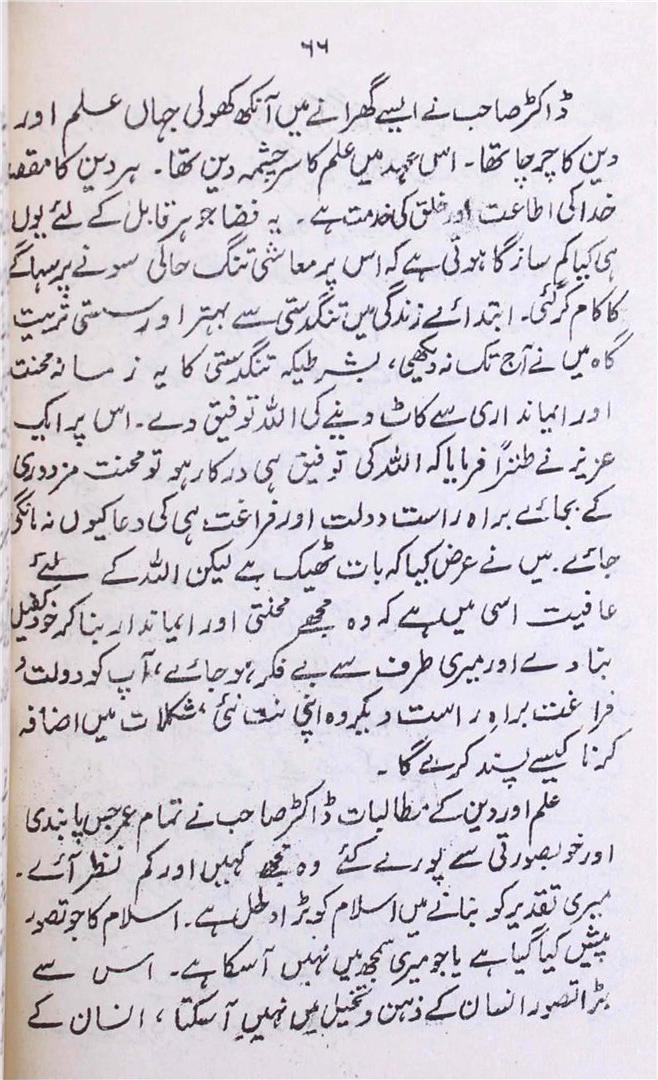 ۶۶
ڈاکٹر صاحب نے ایسے گھرانے میں آنکھ کھولی جہاں علم اور
دین کا چرچا تھا۔ اس عہد میں علم کا سرچشمہ دین تھا۔ ہر دین کا مقصد
خدا کی اطاعت اور خلق کی خدمت ہے۔ یہ فضا جوہر قابل کے لئے یوں
ہی کیا کم سازگار ہوتی ہے کہ اس پر معاشی تنگ حالی سونے پر سہاگے
کا کام کر گئی۔ ابتدائے زندگی میں تنگدستی سے بہتر اور سستی تربیت
گاہ میں نے آج تک نہ دیکھی، بشرطیکہ تنگدستی کا یہ زمانہ محنت
اور ایمانداری سے کاٹ دینے کی اللہ توفیق دے۔ اس پر ایک
عزیز نے طنزاً فرمایا کہ اللہ کی توفیق ہی درکار ہو تو محنت مزدوری
کے بجائے براہ راست دولت اور فراغت ہی کی دعا کیوں نہ مانگی
جائے۔ میں نے عرض کیا کہ بات ٹھیک ہے لیکن اللہ کے لئے
عافیت اسی میں ہے کہ وہ مجھے محنتی اور ایماندار بنا کر خود کفیل
بنا دے اور میری طرف سے بے فکر ہو جائے، آپ کو دولت و
فراغت براہِ راست دیکر وہ اپنی نت نئی مشکلات میں اضافہ
کرنا کیسے پسند کرے گا۔
علم اور دین کے مطالبات ڈاکٹر صاحب نے تمام عمر جس پابندی
اور خوبصورتی سے پورے کئے وہ مجھے کہیں اور کم نظر آئے۔
میری تقدیر کو بنانے میں اسلام کو بڑا دخل ہے۔ اسلام کا جو تصور
پیش کیا گیا ہے یا جو میری سمجھ میں نہیں آسکا ہے۔ اس سے
بڑا تصور انسان کے ذہن و تخیل میں نہیں آ سکتا، انسان کے